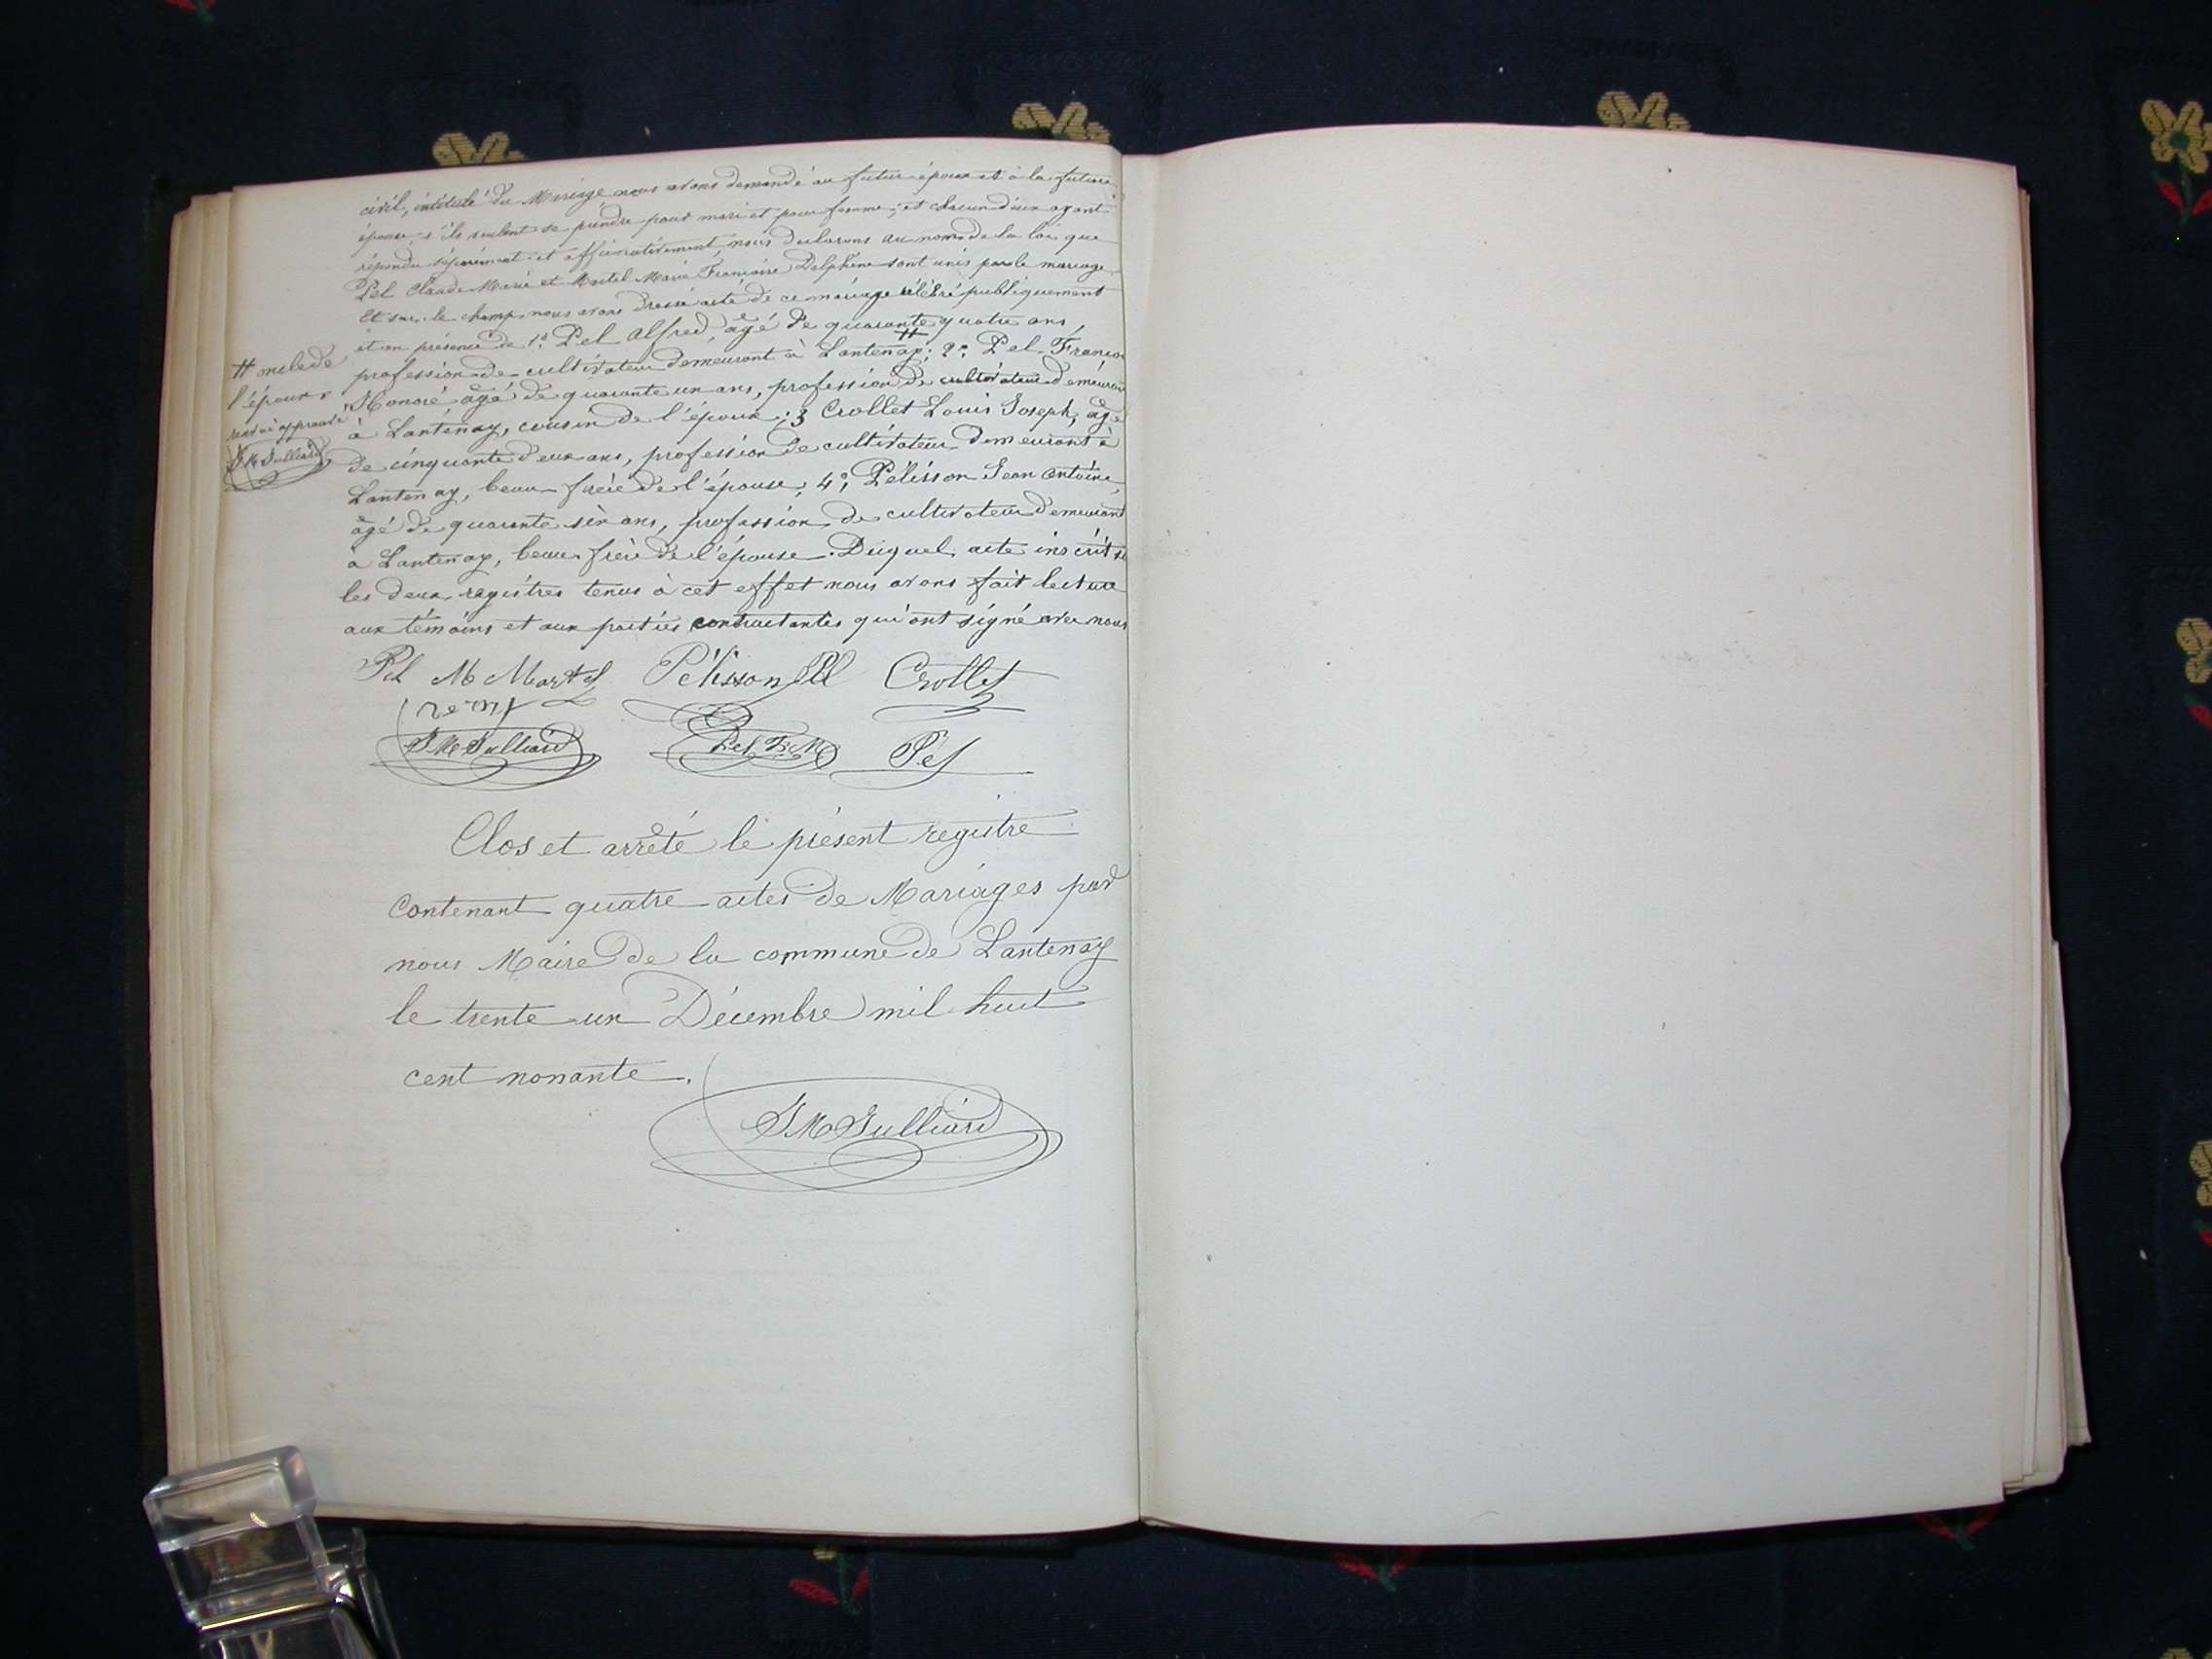 civil, intitulé du Mariage nous avons demandé au futur époux et à la future
épouse, s'ils veulent se prendre pour mari et pour femme; et chacun d'eux ayant
répondu séparément et affirmativement, nous declarons au nom de la loi que
Pel Claude Marie et Martel Marie Françoise Delphine sont unis par le mariage.
Et sur le champ nous avons dressé acte de ce mariage célébré publiquement
et en présence de 1º Pel Alfred, âgé de quarante quatre ans,
profession de cultivateur demeurant à Lantenay # ; 2º Pel François
Honoré âgé de quarante un ans, profession de cultivateur demeurant
à Lantenay, cousin de l'époux; 3 Crollet Louis Joseph, âgé
de cinquante deux ans, profession de cultivateur demeurant à
Lantenay, beau-frère de l'épouse; 4º, Pélisson Jean Antoine,
âgé de quarante six ans, profession de cultivateur demeurant
à Lantenay, beau-frère de l'épouse. Duquel acte inscrit su
les deux registres tenus à cet effet nous avons fait lecture
aux témoins et aux parties contractantes qui ont signé avec nous
#
l'époux
approuvé
J M Julliard
Pel M Martel Pélisson Crollet
J M Julliard Pel F. Pel
Clos et arrêté le présent registre
contenant quatre actes de Mariages par
nous Maire de la commune de Lantenay
le trente-un Décembre mil huit
cent nonante.
J M Julliard